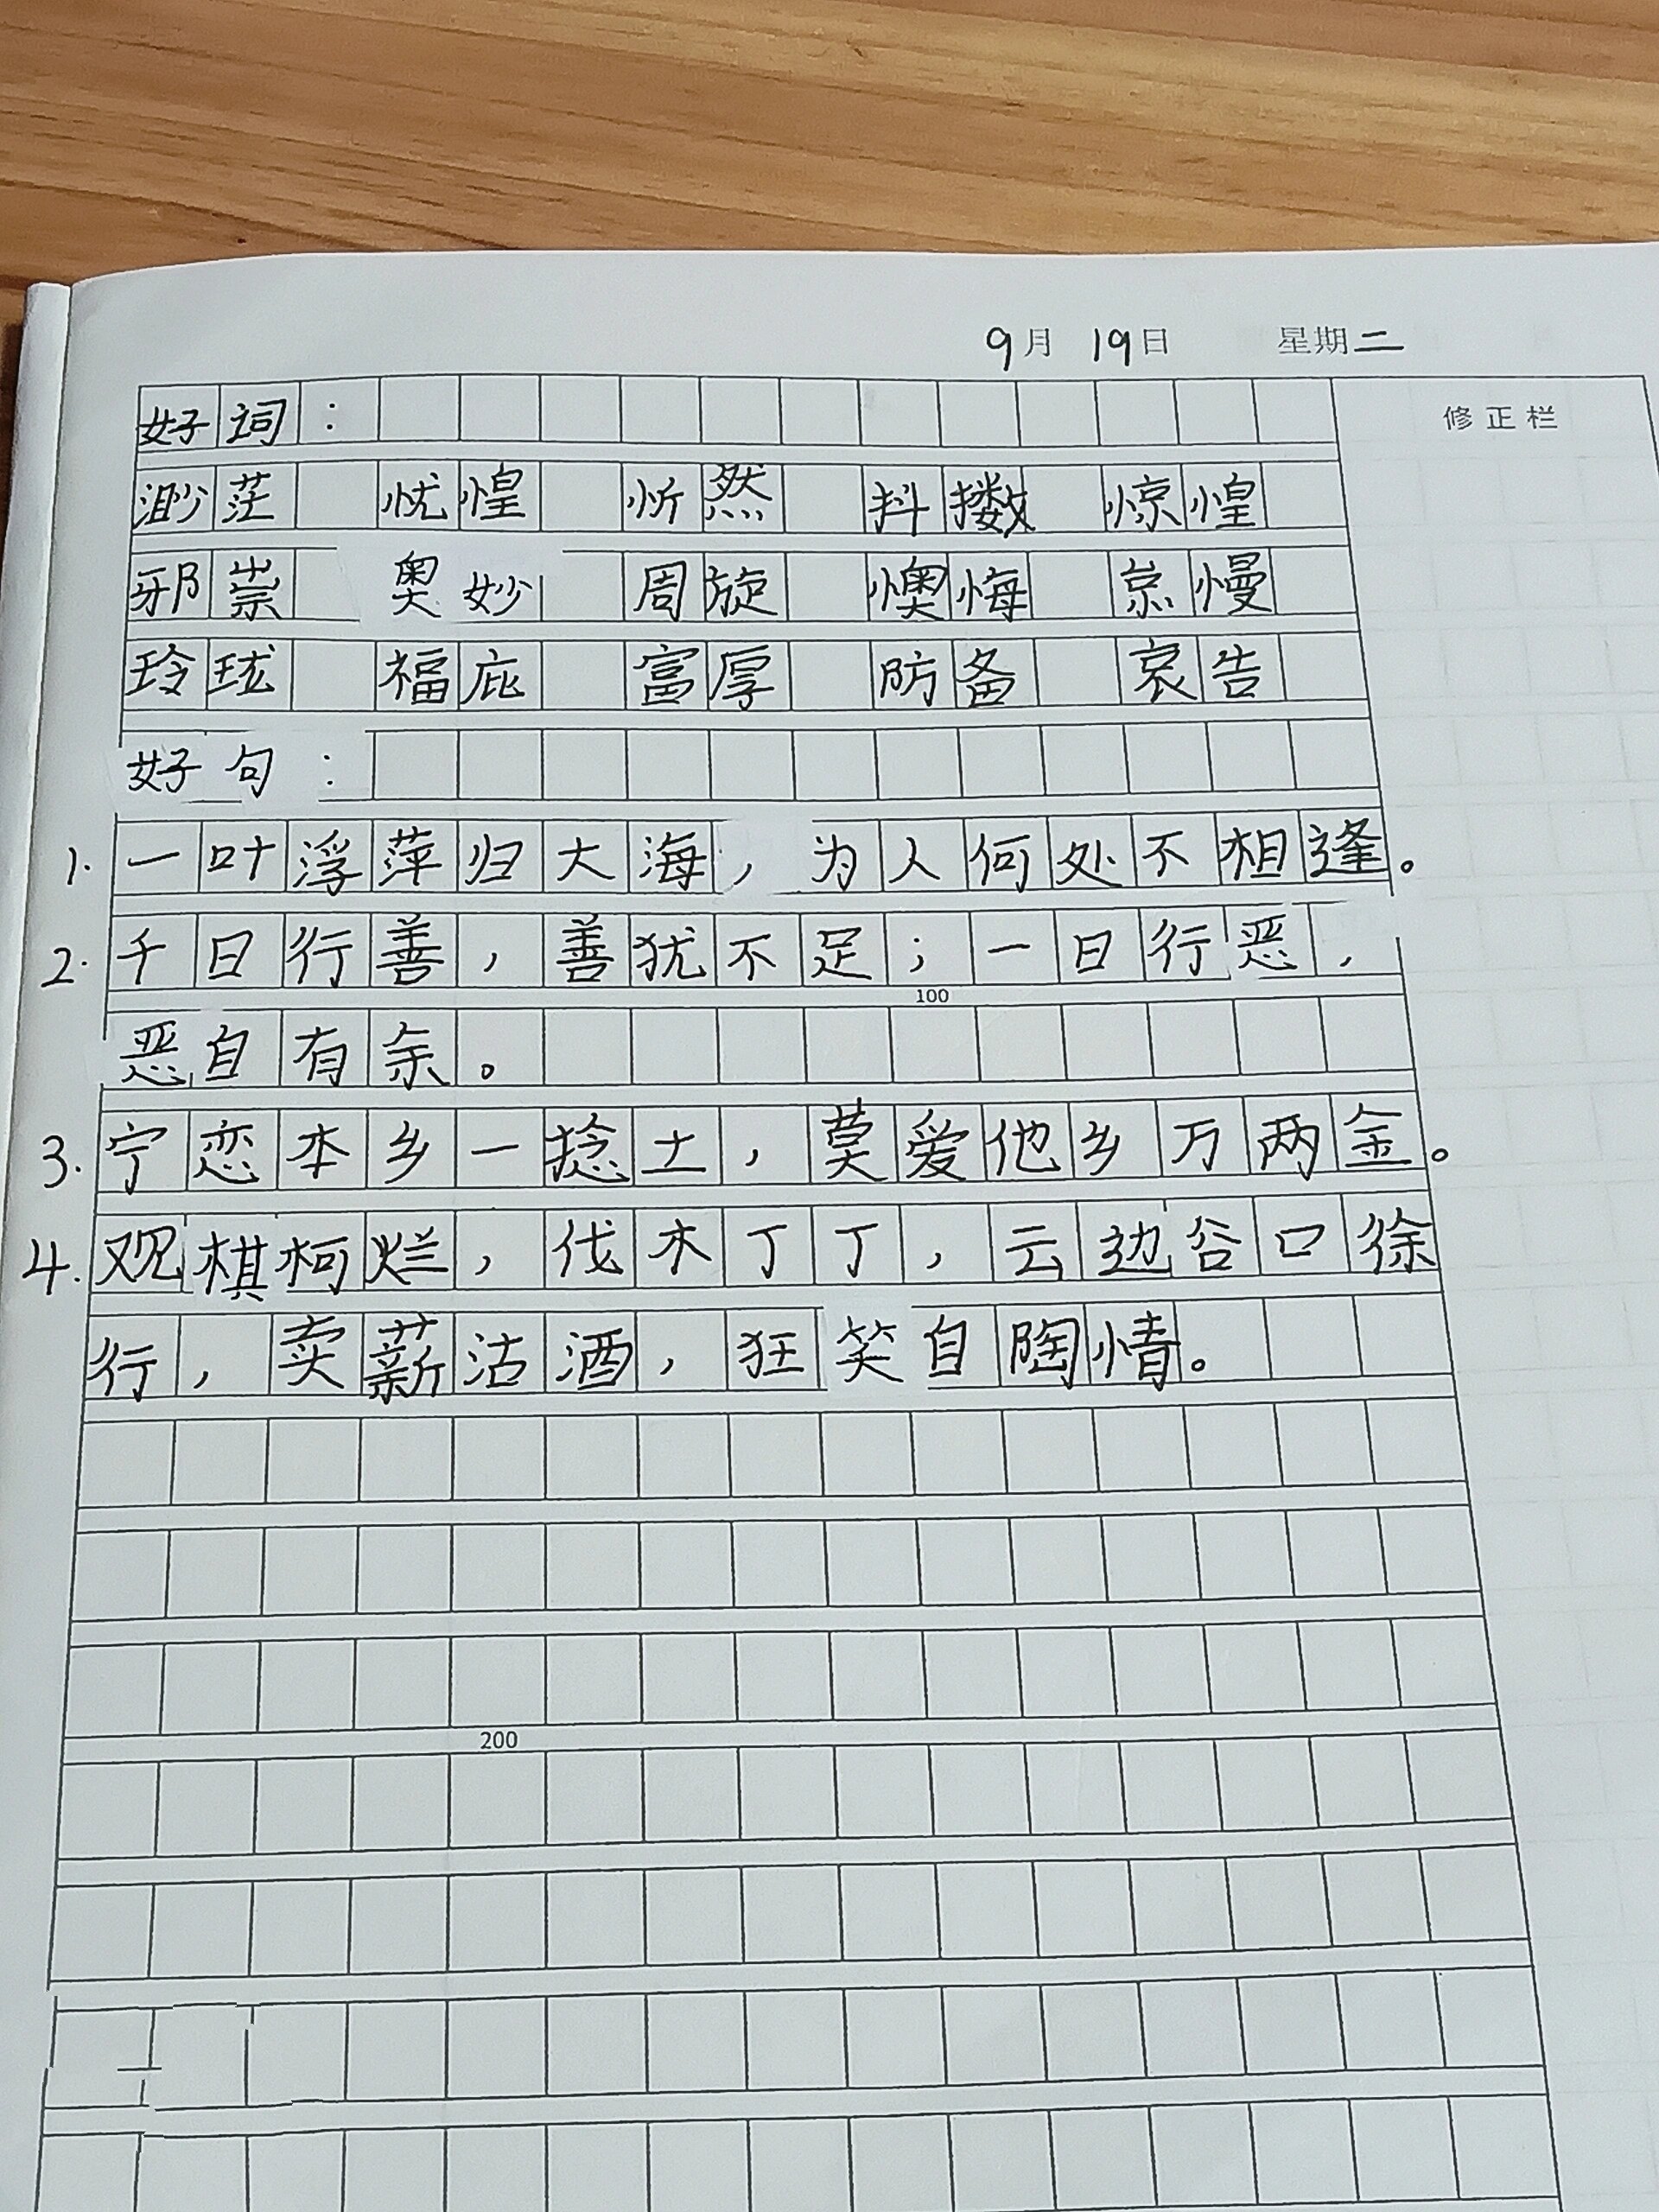 9月 19日 星期二
修正栏
好词：
渺茫 忧惶 忻然 抖擞 惊惶
邪祟 奥妙 周旋 懊悔 怠慢
玲珑 福庇 富厚 防备 哀告
好句：
1. 一叶浮萍归大海，为人何处不相逢。
2. 千日行善，善犹不足；一日行恶，
100
恶自有余。
3. 宁恋本乡一捻土，莫爱他乡万两金。
4. 观棋柯烂，伐木丁丁，云边谷口徐
行，卖薪沽酒，狂笑自陶情。
200